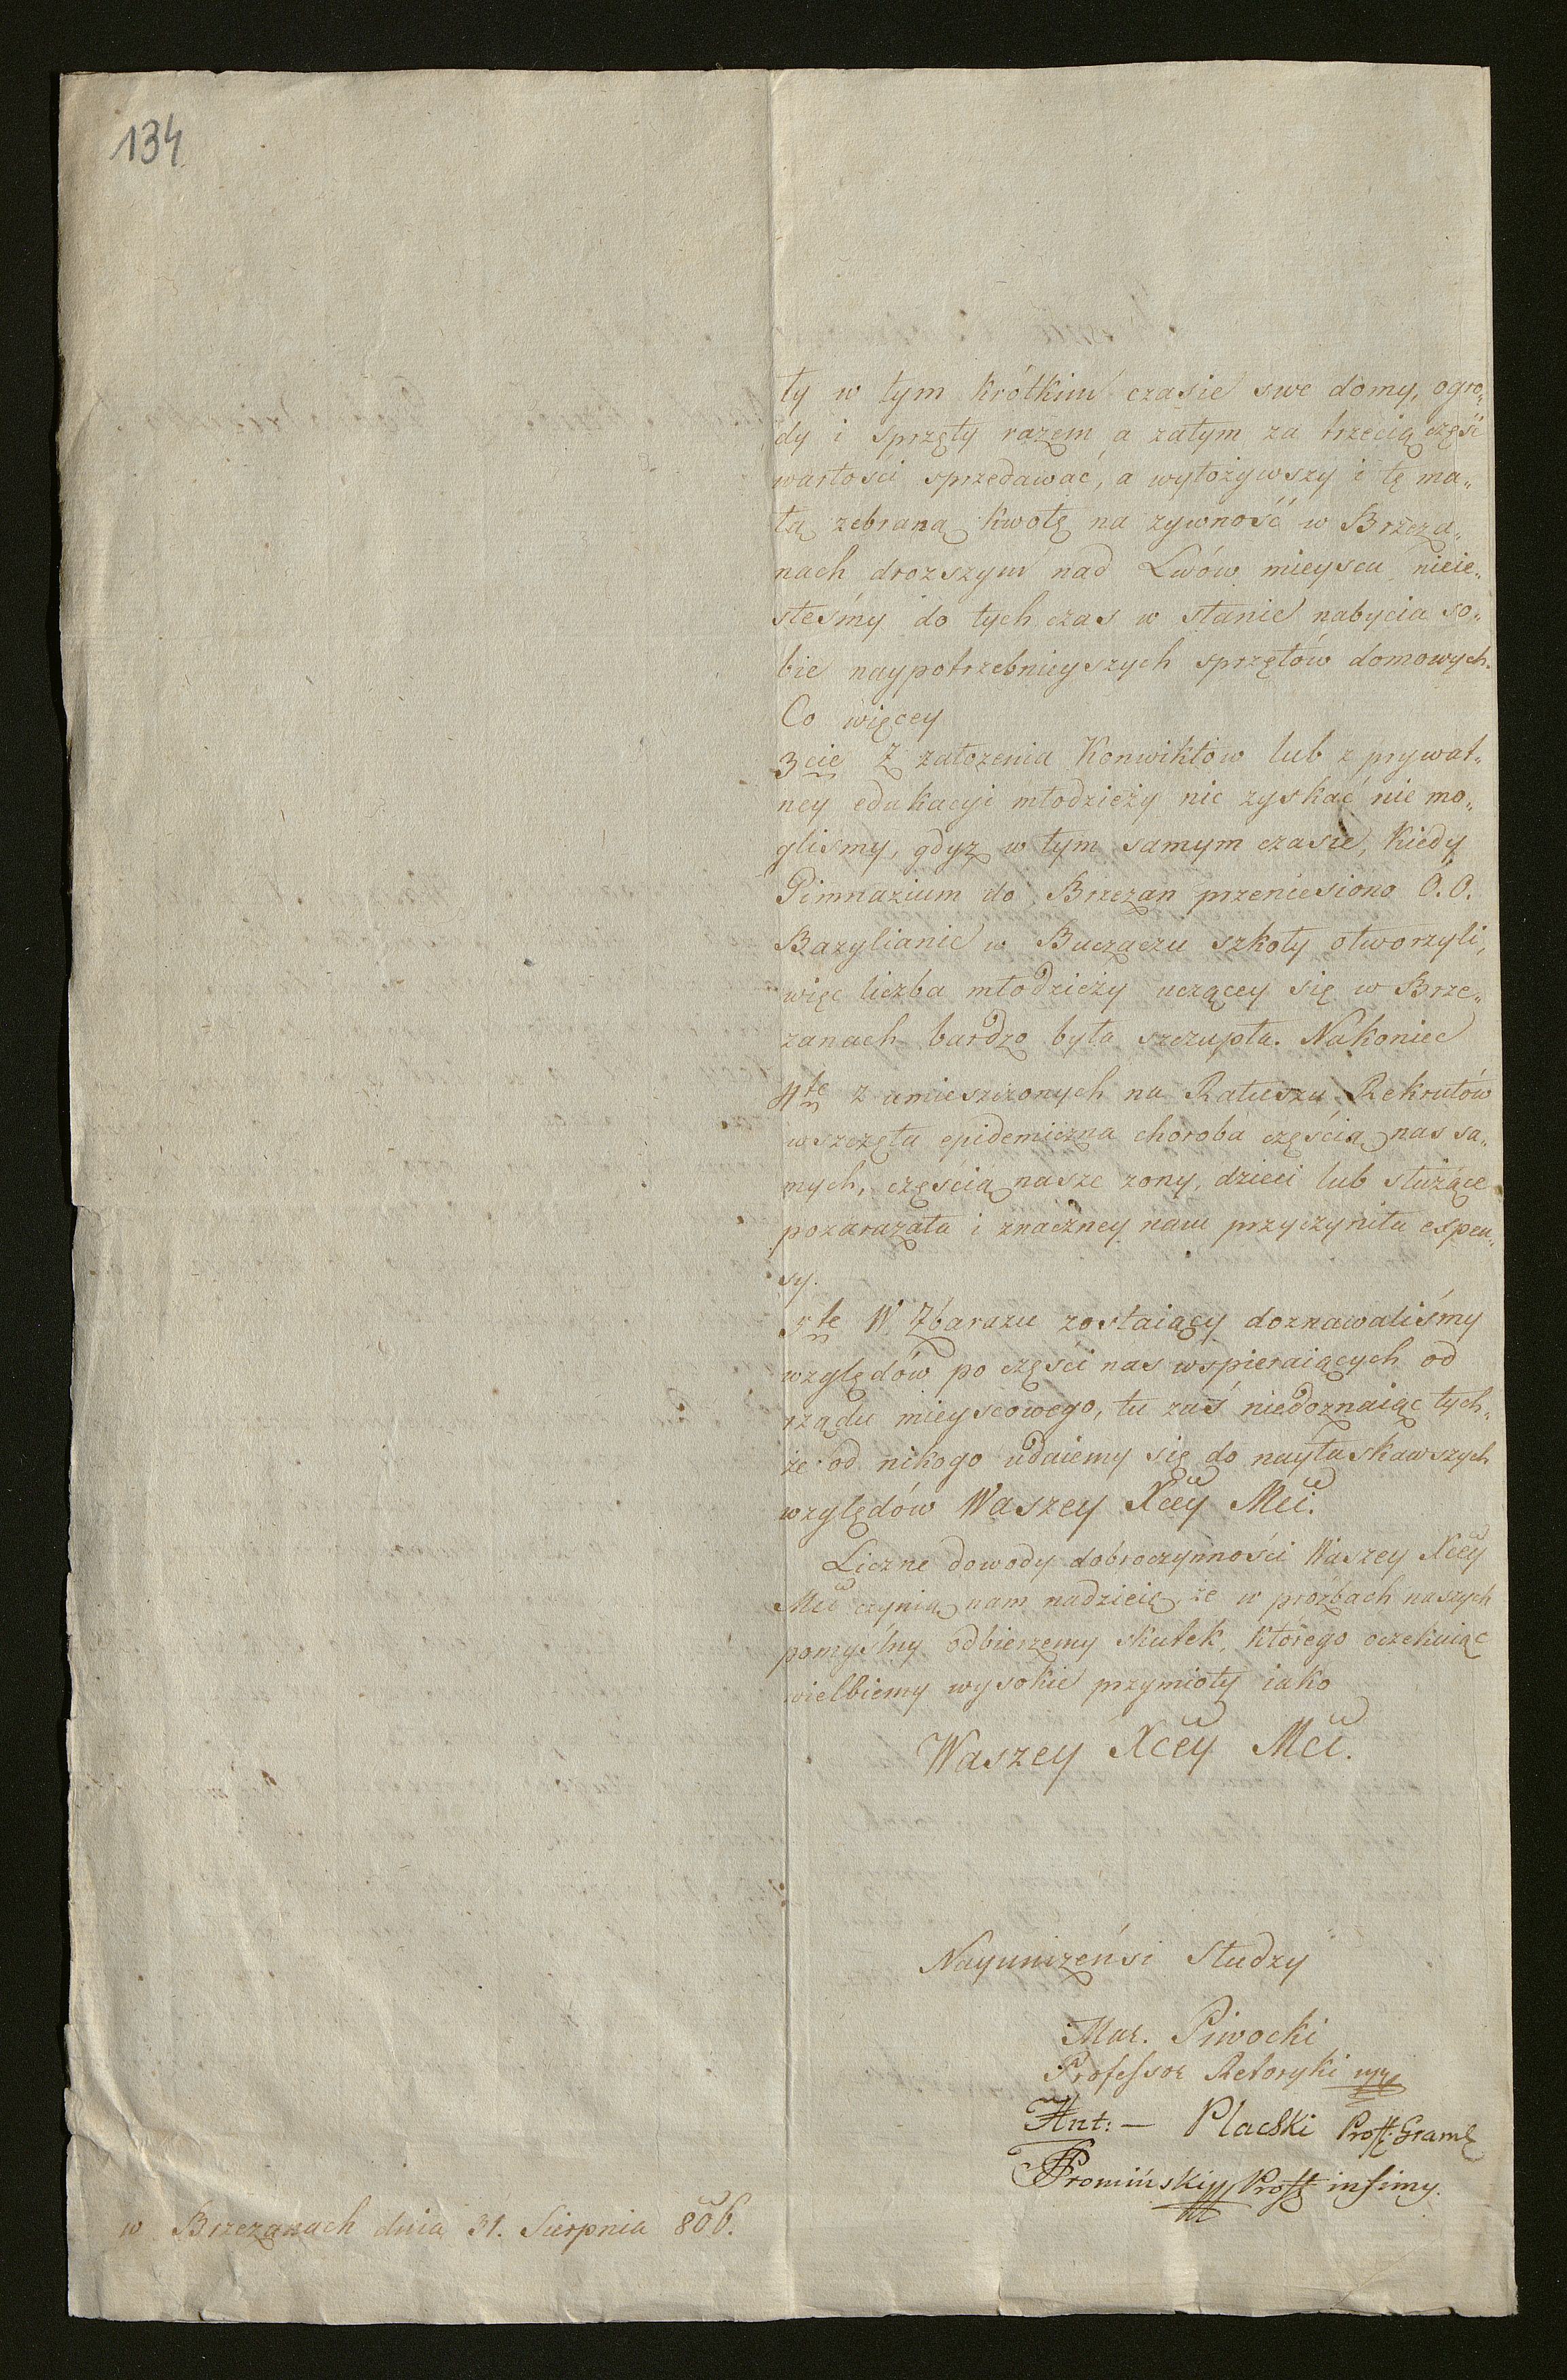 134
ły w tym krótkim czasie swe domy, ogro„
dy i sprzęty razem a zatym za trzecią część
wartości sprzedawać, a wyłożywszy i tę ma„
łą zebraną kwotę na zywność w Brzeża„
nach drozszym nad Lwów mieyscu nieie„
steśmy do tych czas w stanie nabycia so„
bie naypotrzebnieyszych sprzętów domowych.
Co więcey
3cie Z założenia Konwiktów lub z prywat„
ney edukacyi młodzieży nic zyskać nie mo„
gliśmy, gdyż w tym samym czasie, kiedy
Gimnazium do Brzeżan przeniesiono O.O.
Bazylianie w Buczaczu szkoły otworzyli,
więc liczba młodzieży uczącey się w Brze„
zanach bardzo była szczupła. Nakoniec
4te z umieszczonych na Ratuszu Rekrutów
wszczęta epidemiczna choroba częścią nas sa„
mych, częścią nasze zony, dzieci lub służące
pozarażała i znaczney nam przyczyniła expen„
sy.
5te W Zbarazu zostaiący doznawaliśmy
względów po części nas wspieraiących od
rządu mieyscowego, tu zaś niedoznaiąc tych„
że od nikogo udaiemy się do nayłaskawszych
względów Waszey Xcey Mci.
Liczne dowody dobroczynności Waszey Xcey
Mci czynią nam nadzieię, że w proźbach naszych
pomyślny odbierzemy skutek, którego oczekuiąc
wielbiemy wysokie przymioty iako
Waszey Xcey Mci.
Nayunizeńsi Słudzy
Mar. Piwocki
Professor Retoryki mp
Ant: — Placski Proff. Gram
Fromiński Proff infimy.
w Brzeżanach dnia 31. Sierpnia 806.